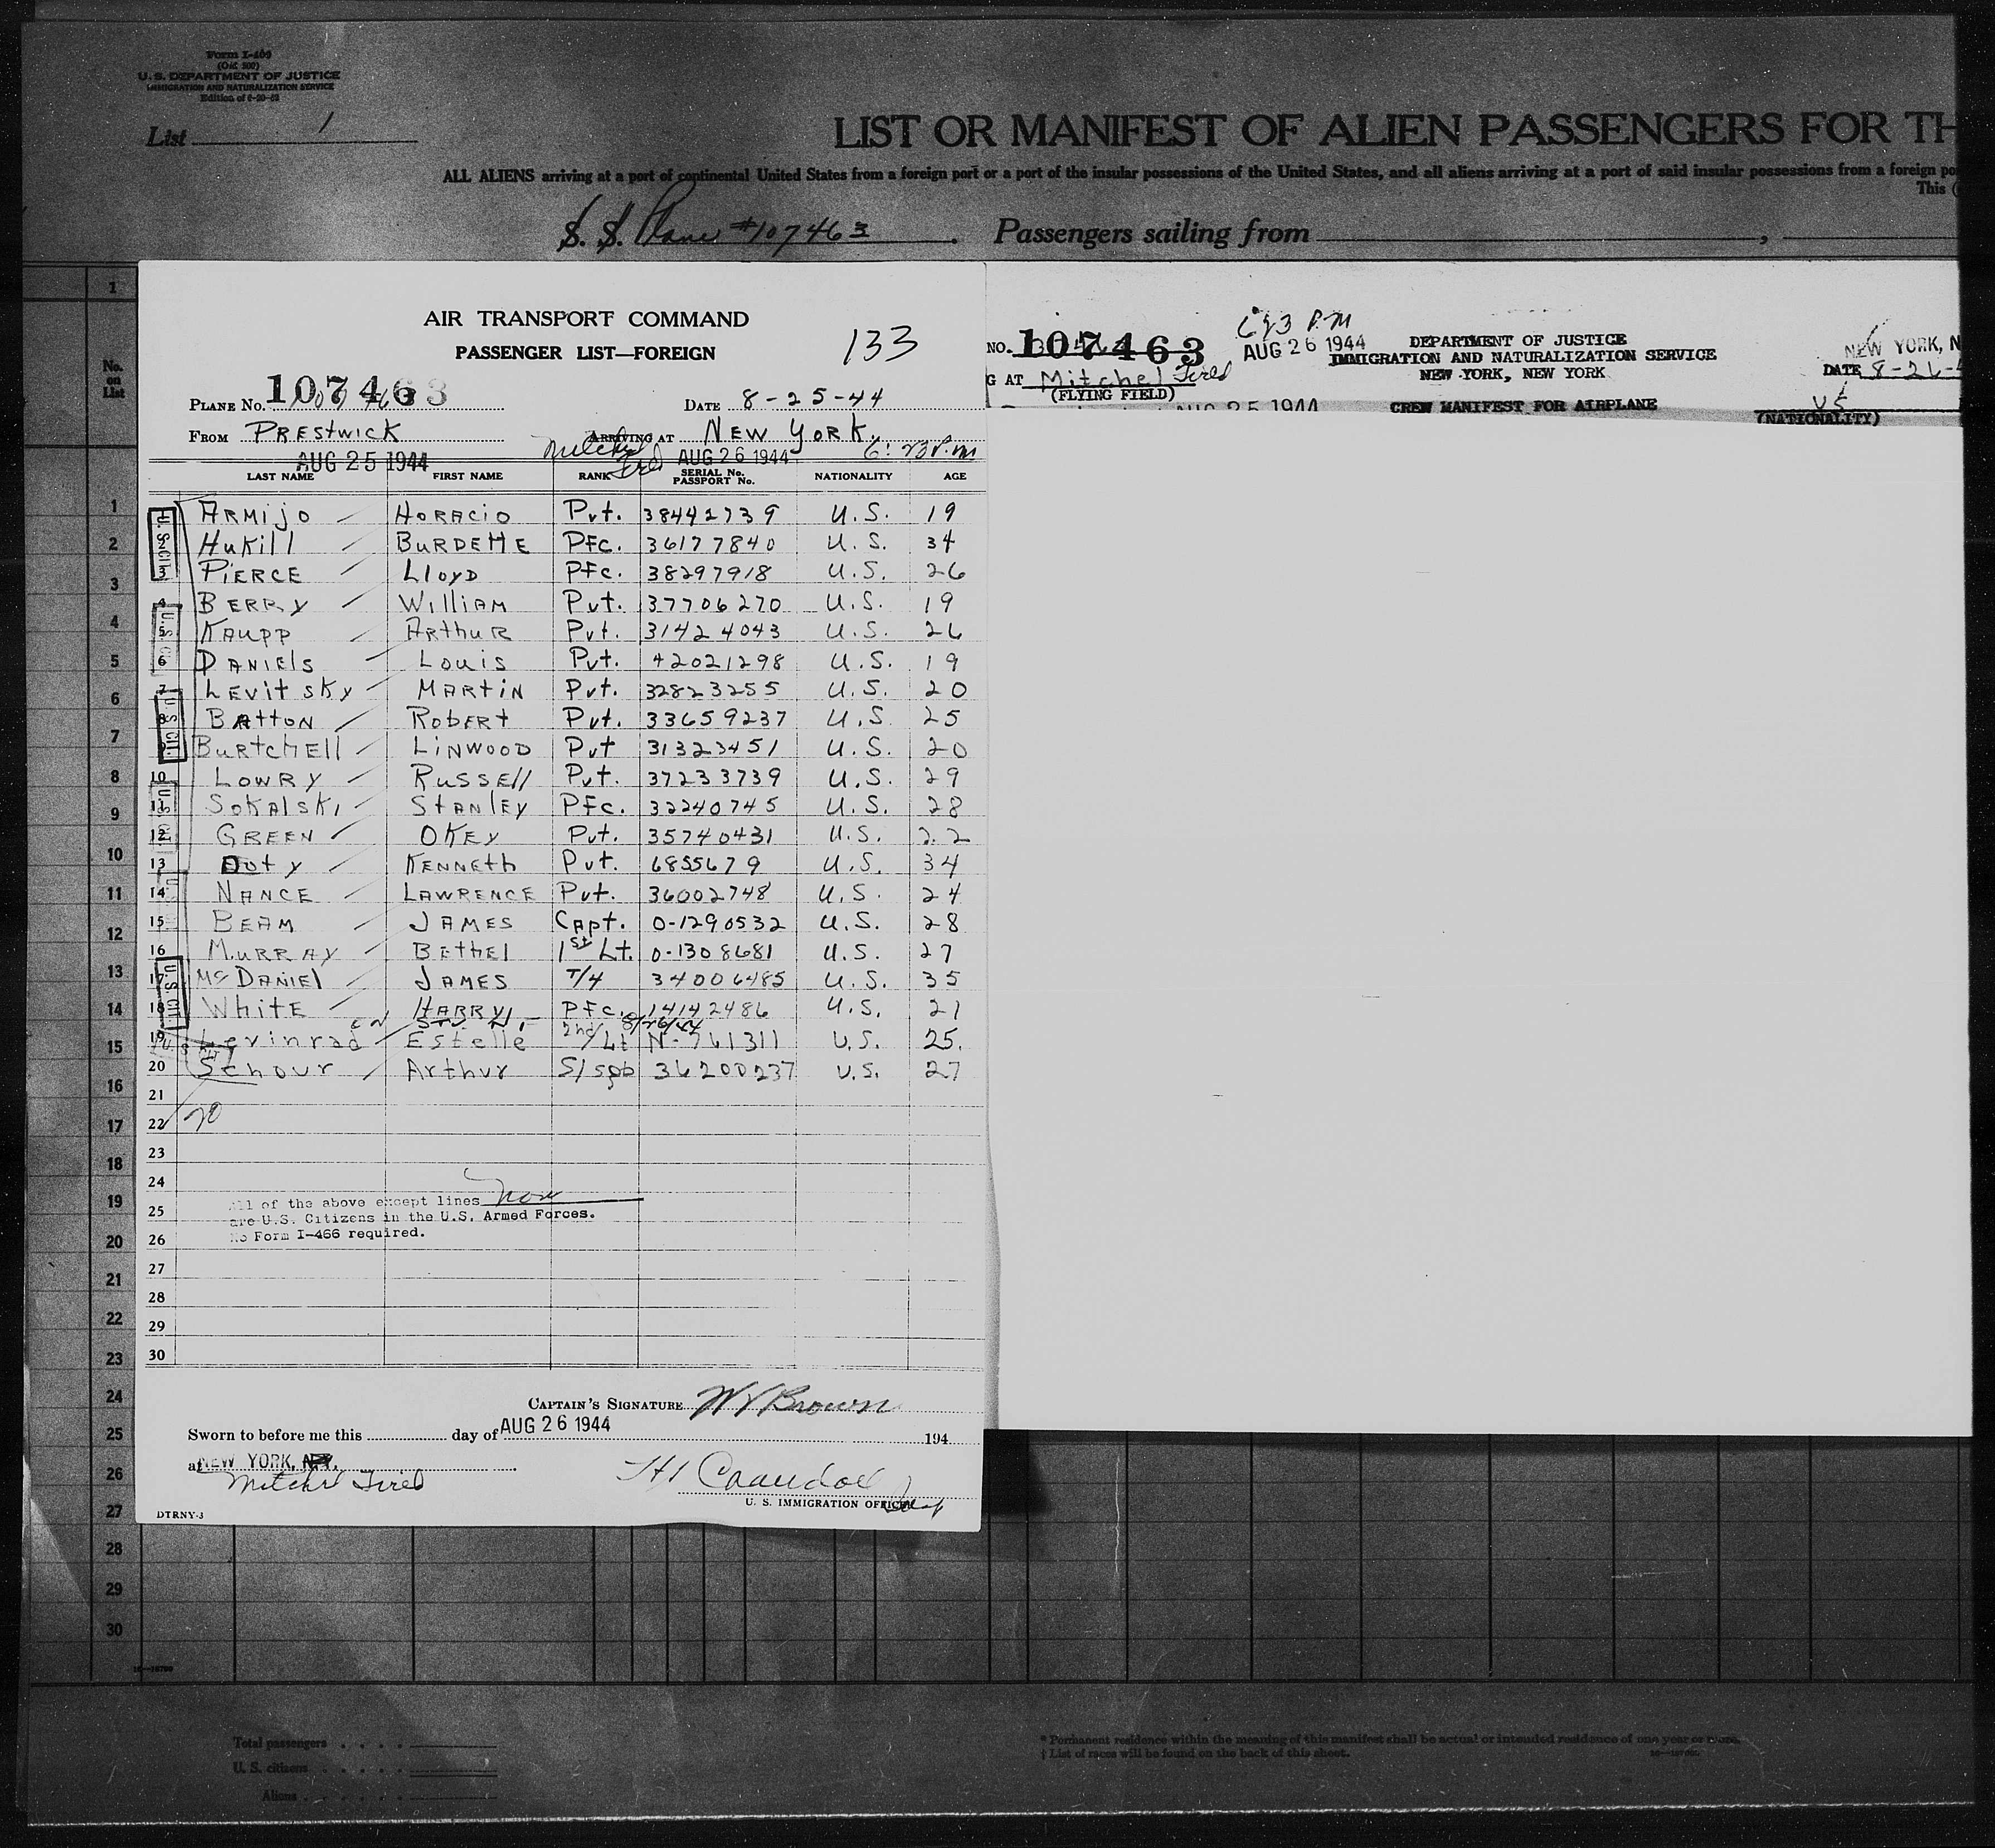 Form I-469
(Old 500)
U. S. DEPARTMENT OF JUSTICE
IMMIGRATION AND NATURALIZATION SERVICE
List 1
LIST OR MANIFEST OF ALIEN PASSENGERS FOR TH
ALL ALIENS arriving at a port of continental United States from a foreign port or a port of the insular possessions of the United States, and all aliens arriving at a port of said insular possessions from a foreign po
This (
S. S. Plane #107463 . Passengers sailing from ,
No. on List
AIR TRANSPORT COMMAND
PASSENGER LIST—FOREIGN
133
PLANE No. 107463 DATE 8-25-44
FROM PRESTWICK ARRIVING AT NEW YORK.
AUG 25 1944 Mitchel Field AUG 26 1944 6:23 P.M
LAST NAME FIRST NAME RANK SERIAL No. PASSPORT No. NATIONALITY AGE
ARMIJO HORACIO Pvt. 38442739 U.S. 19
HUKILL BURDETTE PFC. 36177840 U.S. 34
PIERCE LLOYD PFC. 38297918 U.S. 26
BERRY WILLIAM Pvt. 37706270 U.S. 19
KAUPP ARTHUR Pvt. 31424043 U.S. 26
6 DANIELS LOUIS Pvt. 42021298 U.S. 19
7 LEVITSKY MARTIN Pvt. 32823255 U.S. 20
8 BATTON ROBERT Pvt. 33659237 U.S. 25
BURTCHELL LINWOOD Pvt 31323451 U.S. 20
10 LOWRY RUSSELL Pvt. 37233739 U.S. 29
11 SOKALSKI STANLEY PFC. 32240745 U.S. 28
12 GREEN OKEY Pvt. 35740431 U.S. 22
13 DOTY KENNETH Pvt. 6855679 U.S. 34
14 NANCE LAWRENCE Pvt. 36002748 U.S. 24
15 BEAM JAMES CAPT. O-1290532 U.S. 28
16 MURRAY BETHEL 1st Lt. O-1308681 U.S. 27
17 McDANIEL JAMES T/4 34006485 U.S. 35
18 WHITE HARRY PFC. 14142486 U.S. 21
19 Levinrad Estelle 2nd/Lt N-761311 U.S. 25.
20 Schour Arthur S/sgt 36200237 U.S. 27
21
22 20
23
24
25
26
All of the above except lines None
are U.S. Citizens in the U.S. Armed Forces.
No Form I-466 required.
27
28
29
30
CAPTAIN'S SIGNATURE W Brown
Sworn to before me this day of AUG 26 1944 194
at NEW YORK, N.Y.
Mitchel Field
U. S. IMMIGRATION OFFICER
DTRNY-3
NO. 107463 AUG 26 1944
DEPARTMENT OF JUSTICE
IMMIGRATION AND NATURALIZATION SERVICE
NEW YORK, NEW YORK
NEW YORK, N
DATE 8-26-4
G AT Mitchel Field
(FLYING FIELD)
AUG 25 1944
CREW MANIFEST FOR AIRPLANE
US
(NATIONALITY)
1
2
3
4
5
6
7
8
9
10
11
12
13
14
15
16
17
18
19
20
21
22
23
24
25
26
27
28
29
30
Total passengers
U. S. citizens
Aliens
* Permanent residence within the meaning of this manifest shall be actual or intended residence of one year or more.
† List of races will be found on the back of this sheet.